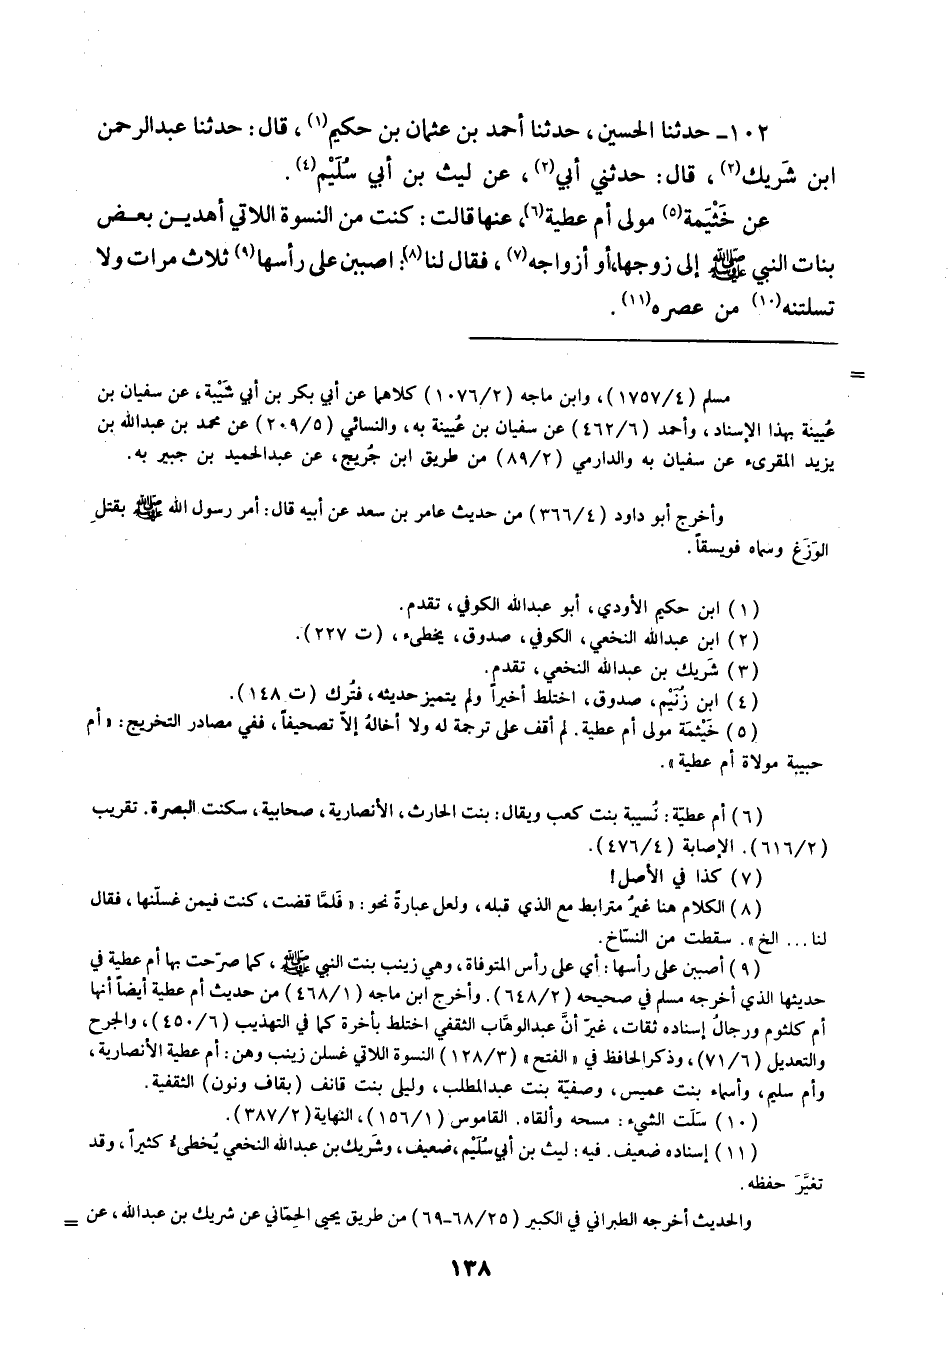 ١٠٢ـ حدثنا الحسين، حدثنا أحمد بن عثمان بن حكيم(١)، قال: حدثنا عبدالرحمن
ابن شَريك(٢)، قال: حدثني أبي(٣)، عن ليث بن أبي سُلَيْم(٤).
عن خَثْيَمة(٥) مولى أم عطية(٦)، عنها قالت: كنت من النسوة اللاتي أهديـن بعـض
بنات النبي ﷺ إلى زوجها، أو أزواجه(٧)، فقال لنا(٨): اصببن على رأسها(٩) ثلاث مرات ولا
تسلتنه(١٠) من عصره(١١).
=
مسلم (٤/١٧٥٧)، وابن ماجه (٢/١٠٧٦) كلاهما عن أبي بكر بن أبي شَيْبة، عن سفيان بن
عُيينة بهذا الإسناد، وأحمد (٦/٤٦٢) عن سفيان بن عُيينة به، والنسائي (٥/٢٠٩) عن محمد بن عبدالله بن
يزيد المقرىء عن سفيان به والدارمي (٢/٨٩) من طريق ابن جُريج، عن عبدالحميد بن جبير به.
وأخرج أبو داود (٤/٣٦٦) من حديث عامر بن سعد عن أبيه قال: أمر رسول الله ﷺ بقتل
الوَزَغ وسماه فويسقاً.
(١) ابن حكيم الأودي، أبو عبدالله الكوفي، تقدم.
(٢) ابن عبدالله النخعي، الكوفي، صدوق، يخطىء، (ت ٢٢٧).
(٣) شَريك بن عبدالله النخعي، تقدم.
(٤) ابن زُنَيْم، صدوق، اختلط أخيراً ولم يتميز حديثه، فتُرك (ت ١٤٨).
(٥) خَيْثمة مولى أم عطية. لم أقف على ترجمة له ولا أخالهُ إلاّ تصحيفاً، ففي مصادر التخريج: «أم
حبيبة مولاة أم عطية».
(٦) أم عطيّة: نُسيبة بنت كعب ويقال: بنت الحارث، الأنصارية، صحابية، سكنت البصرة. تقريب
(٢/٦١٦). الإصابة (٤/٤٧٦).
(٧) كذا في الأصل!
(٨) الكلام هنا غيرُ مترابط مع الذي قبله، ولعل عبارةً نحو: «فَلمَّا قضت، كنت فيمن غسلّنها، فقال
لنا... الخ». سقطت من النسّاخ.
(٩) أصببن على رأسها: أي على رأس المتوفاة، وهي زينب بنت النبي ﷺ، كما صرّحت بها أم عطية في
حديثها الذي أخرجه مسلم في صحيحه (٢/٦٤٨). وأخرج ابن ماجه (١/٤٦٨) من حديث أم عطية أيضاً أنها
أم كلثوم ورجالُ إسناده ثقات، غيرّ أنَّ عبدالوهَّاب الثقفي اختلط بأخرة كما في التهذيب (٦/٤٥٠)، والجرح
والتعديل (٦/٧١)، وذكر الحافظ في «الفتح» (٣/١٢٨) النسوة اللاتي غسلن زينب وهن: أم عطية الأنصارية،
وأم سليم، وأسماء بنت عميس، وصفيّة بنت عبدالمطلب، وليلى بنت قانف (بقاف ونون) الثقفية.
(١٠) سَلَت الشيء: مسحه وألقاه. القاموس (١/١٥٦)، النهاية (٢/٣٨٧).
(١١) إسناده ضعيف. فيه: ليث بن أبي سُلَيْم، ضعيف، وشَريك بن عبدالله النخعي يُخطىءُ كثيراً، وقد
تغيَّرَ حفظه.
والحديث أخرجه الطبراني في الكبير (٢٥/٦٨ـ٦٩) من طريق يحيى الحِمّاني عن شريك بن عبدالله، عن =
١٣٨